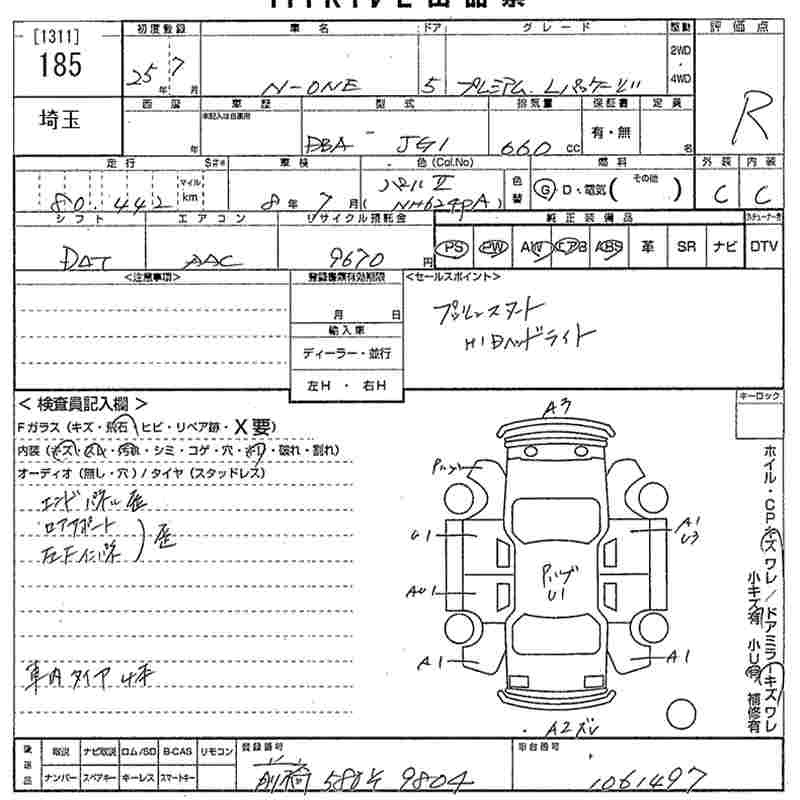 [1311]
185
埼玉
初度登録
25年7月
車名
N-ONE
ドア
5
グレード
プレミアム・Lパッケージ
駆動
2WD
・
4WD
評価点
R
西暦
年
車歴
未記入は自家用
型式
DBA - JG1
排気量
660 cc
保証書
有・無
定員
名
走行
$#*
80,442
マイル
km
車検
8年7月
色(Col.No)
パール II
(NH624PA)
色替
燃料
G D・電気(その他 )
外装
C
内装
C
シフト
DAT
エアコン
AAC
リサイクル預託金
9670円
純正装備品
PS PW AW エアB ABS 革 SR ナビ
DTV
<注意事項>
登録書類有効期限
月 日
輸入車
ディーラー・並行
左H・右H
<セールスポイント>
プッシュスタート
HIDヘッドライト
<検査員記入欄>
Fガラス(キズ・飛石・ヒビ・リペア跡・X要)
内装(キズ・スレ・汚れ・シミ・コゲ・穴・・破れ・割れ)
オーディオ(無し・穴)/タイヤ(スタッドレス)
エンドパネル歪
ロアサポート
左Fインパネ
歪
車内タイヤ4本
キーロック
A3
U1
A1
U3
AU1
U1
A1
A1
A2ズレ
ホイル・CPキズワレ/ドアミラーキズワレ
小キズ有 小U有 補修有
後送品
取説 ナビ取説 ロム/SD B-CAS リモコン
ナンバー スペアキー キーレス スマートキー
登録番号
前橋 580 9804
車台番号
1061497